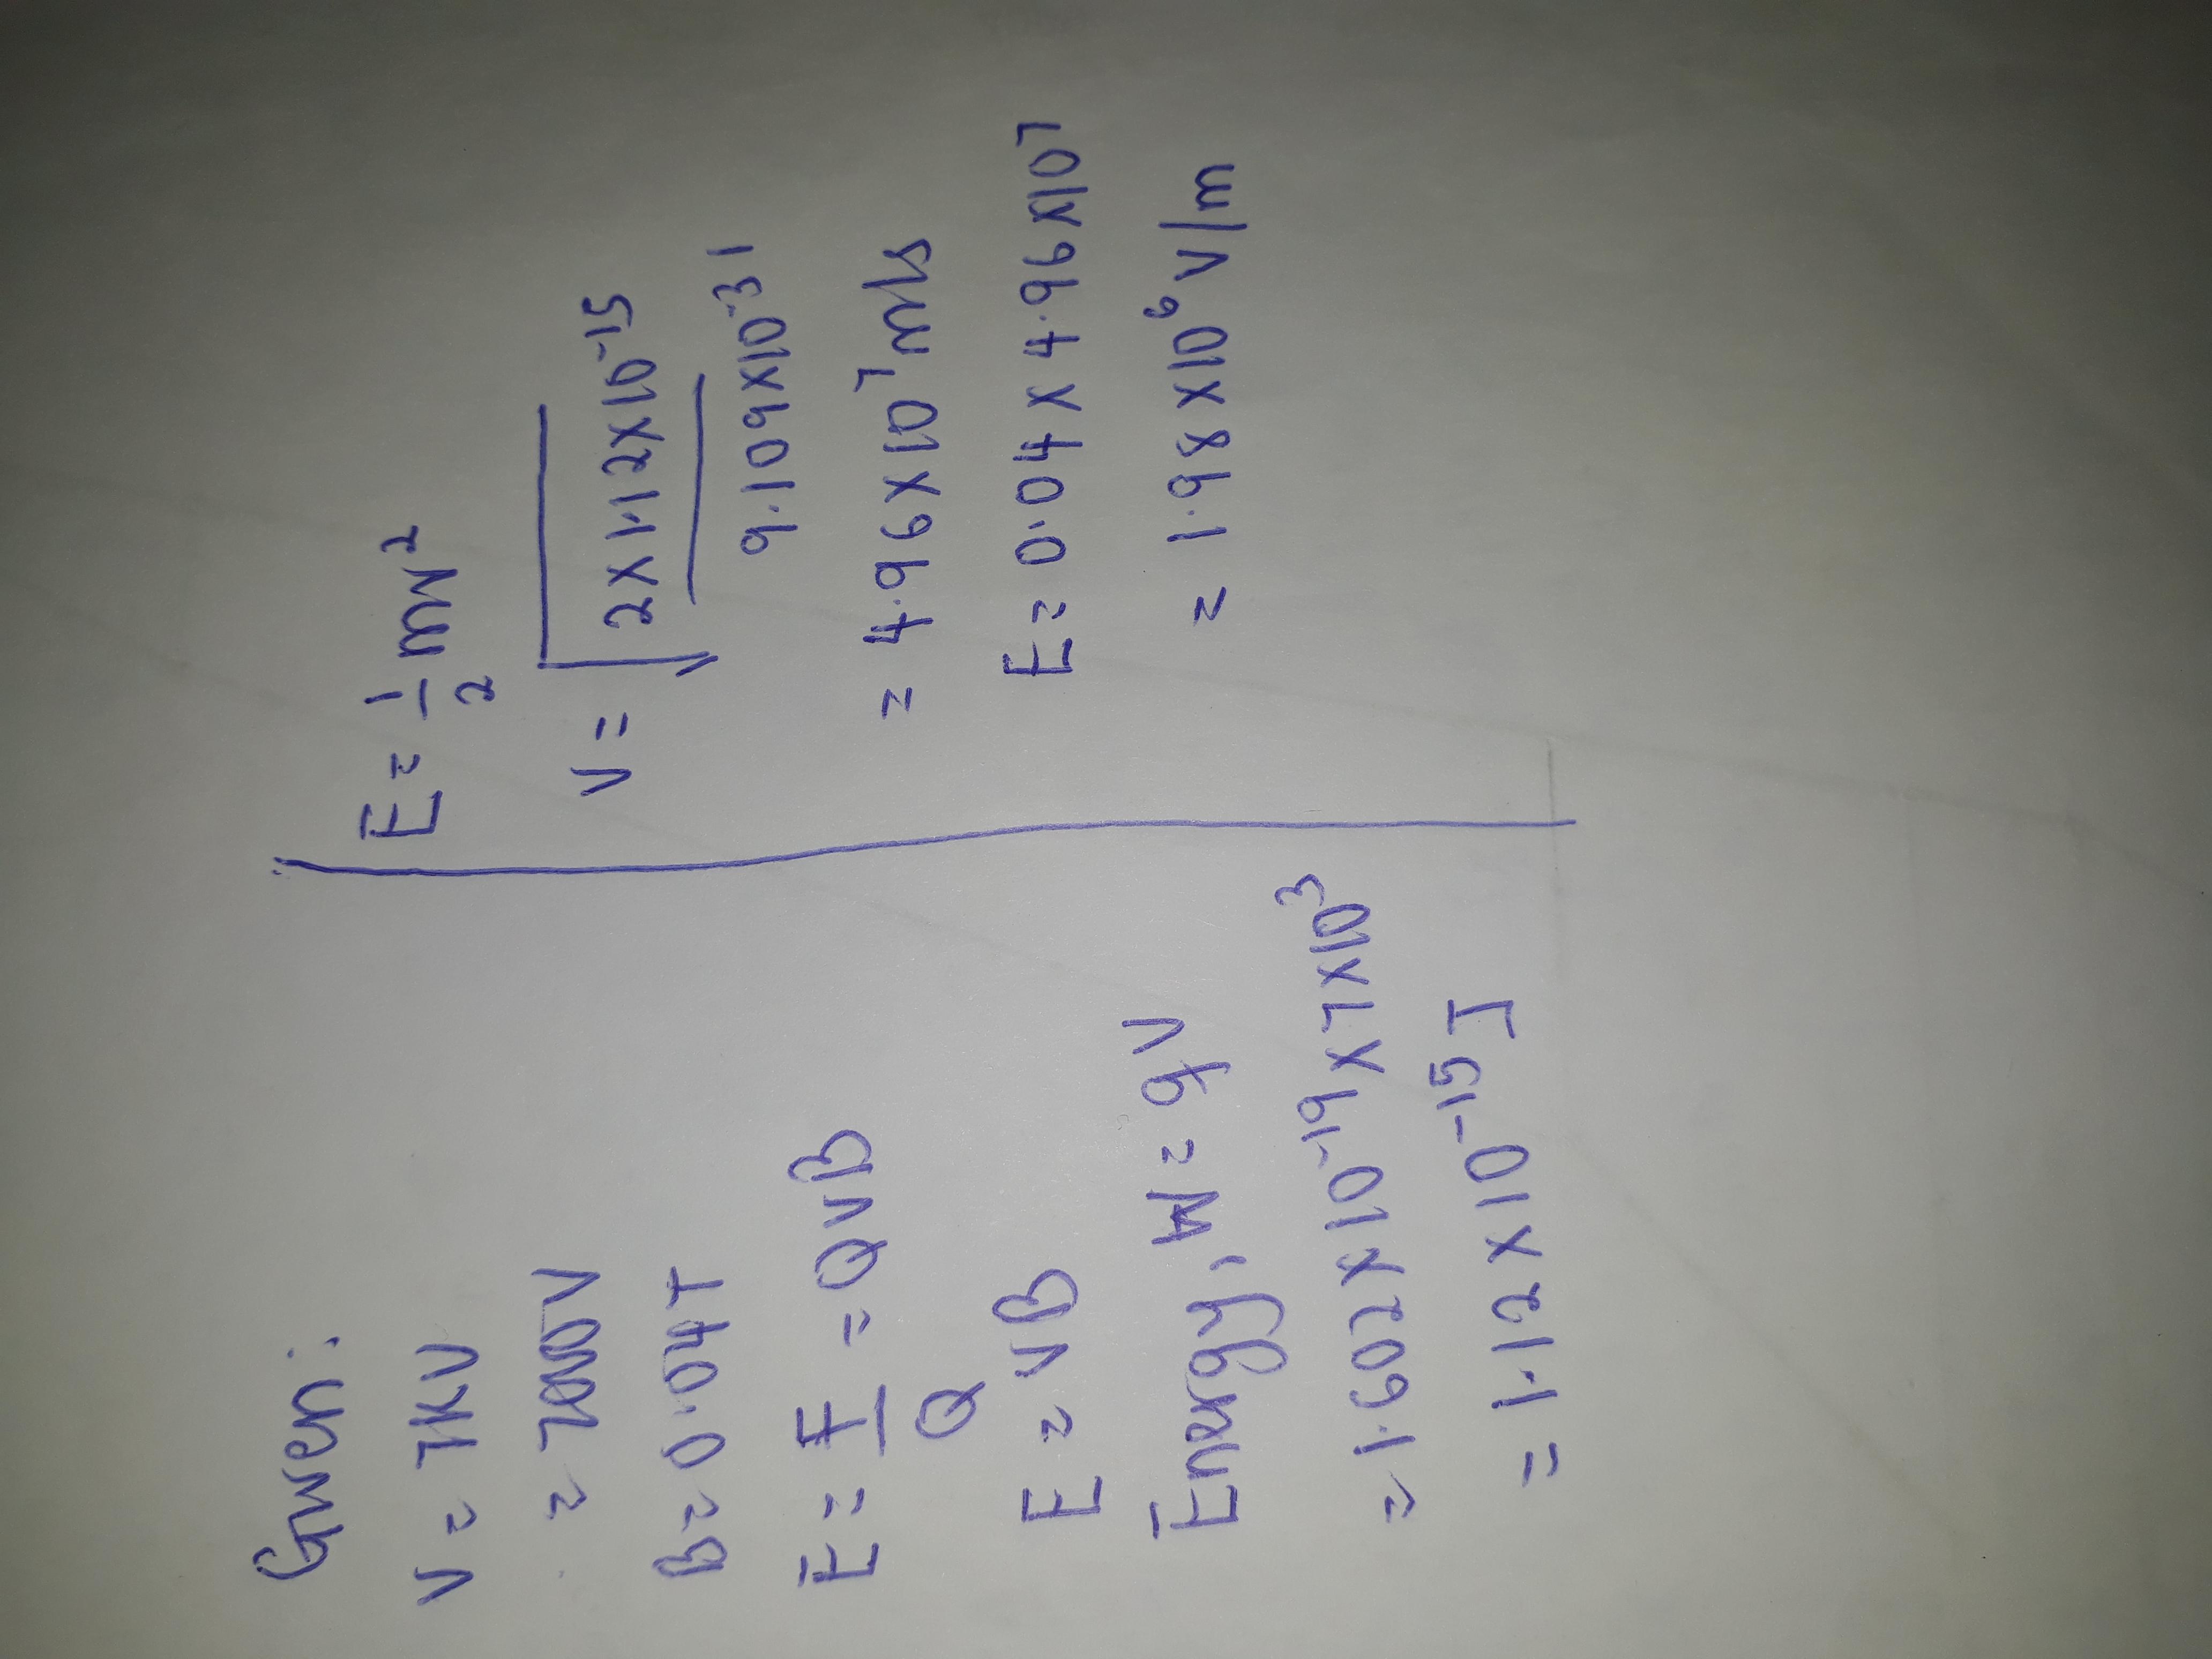 Given:
V = 7KV
= 7000V
B = 0.04T
E = F/Q = QVB
E = VB
Energy, W = qV
= 1.602 X 10⁻¹⁹ X 7X10³
= 1.12 X 10⁻¹⁵ J
E = 1/2 mv²
V = √(2X1.12X10⁻¹⁵ / 9.109X10⁻³¹)
= 4.96 X 10⁷ m/s
E = 0.04 X 4.96 X10⁷
= 1.98 X10⁶ V/m